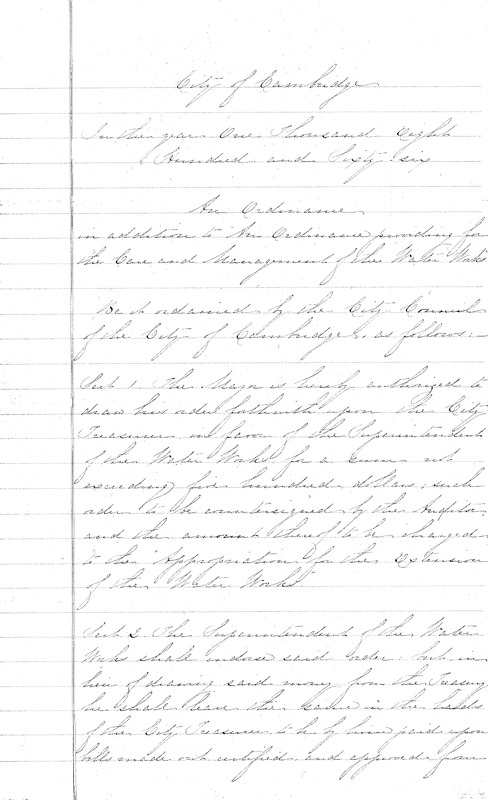 City of Cambridge
In the year One Thousand Eight
Hundred and Sixty six
An Ordinance
in addition to "An Ordinance providing for
the Care and Management of the Water Works"
Be it ordained by the City Council
of the City of Cambridge, as follows:—
Sect 1. The Mayor is hereby authorized to
draw his order forthwith upon the City
Treasurer in favor of the Superintendent
of the Water Works for a sum not
exceeding five hundred dollars; such
order to be countersigned by the Auditor,
and the amount thereof to be charged
to the "Appropriation for the Extension
of the Water Works"
Sect 2. The Superintendent of the Water
Works shall endorse said order: but in
lieu of drawing said money from the Treasury
he shall leave the same in the hands
of the City Treasurer to be by him paid upon
bills made out certified and approved from